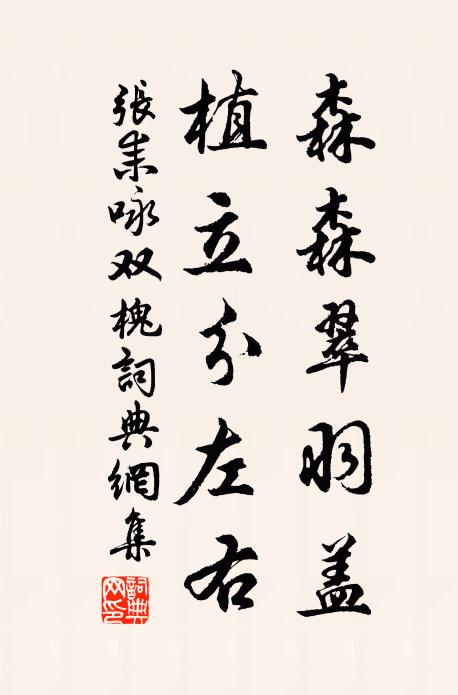 森森翠羽盖
植立分左右
張耒咏双槐詞典網集
詞典網印